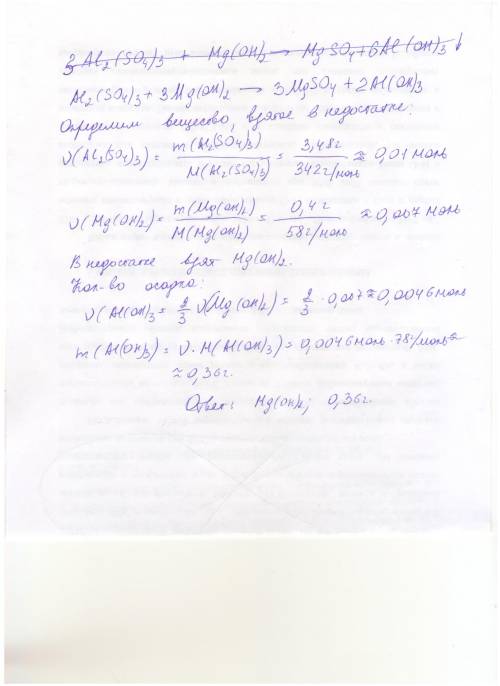 3 Al₂(SO₄)₃ + Mg(OH)₂ → MgSO₄ + 6Al(OH)₃↓
Al₂(SO₄)₃ + 3Mg(OH)₂ → 3MgSO₄ + 2Al(OH)₃
Определим вещество, взятое в недостатке:
υ(Al₂(SO₄)₃) = m(Al₂(SO₄)₃) / M(Al₂(SO₄)₃) = 3,48г / 342г/моль ≈ 0,01 моль
υ(Mg(OH)₂) = m(Mg(OH)₂) / M(Mg(OH)₂) = 0,4г / 58г/моль ≈ 0,007 моль
В недостатке взят Mg(OH)₂.
Кол-во осадка:
υ(Al(OH)₃ = 2/3 υ(Mg(OH)₂) = 2/3 · 0,007 ≈ 0,0046 моль
m(Al(OH)₃) = υ · M(Al(OH)₃) = 0,0046 моль · 78г/моль ≈
≈ 0,36г.
Ответ: Mg(OH)₂; 0,36г.